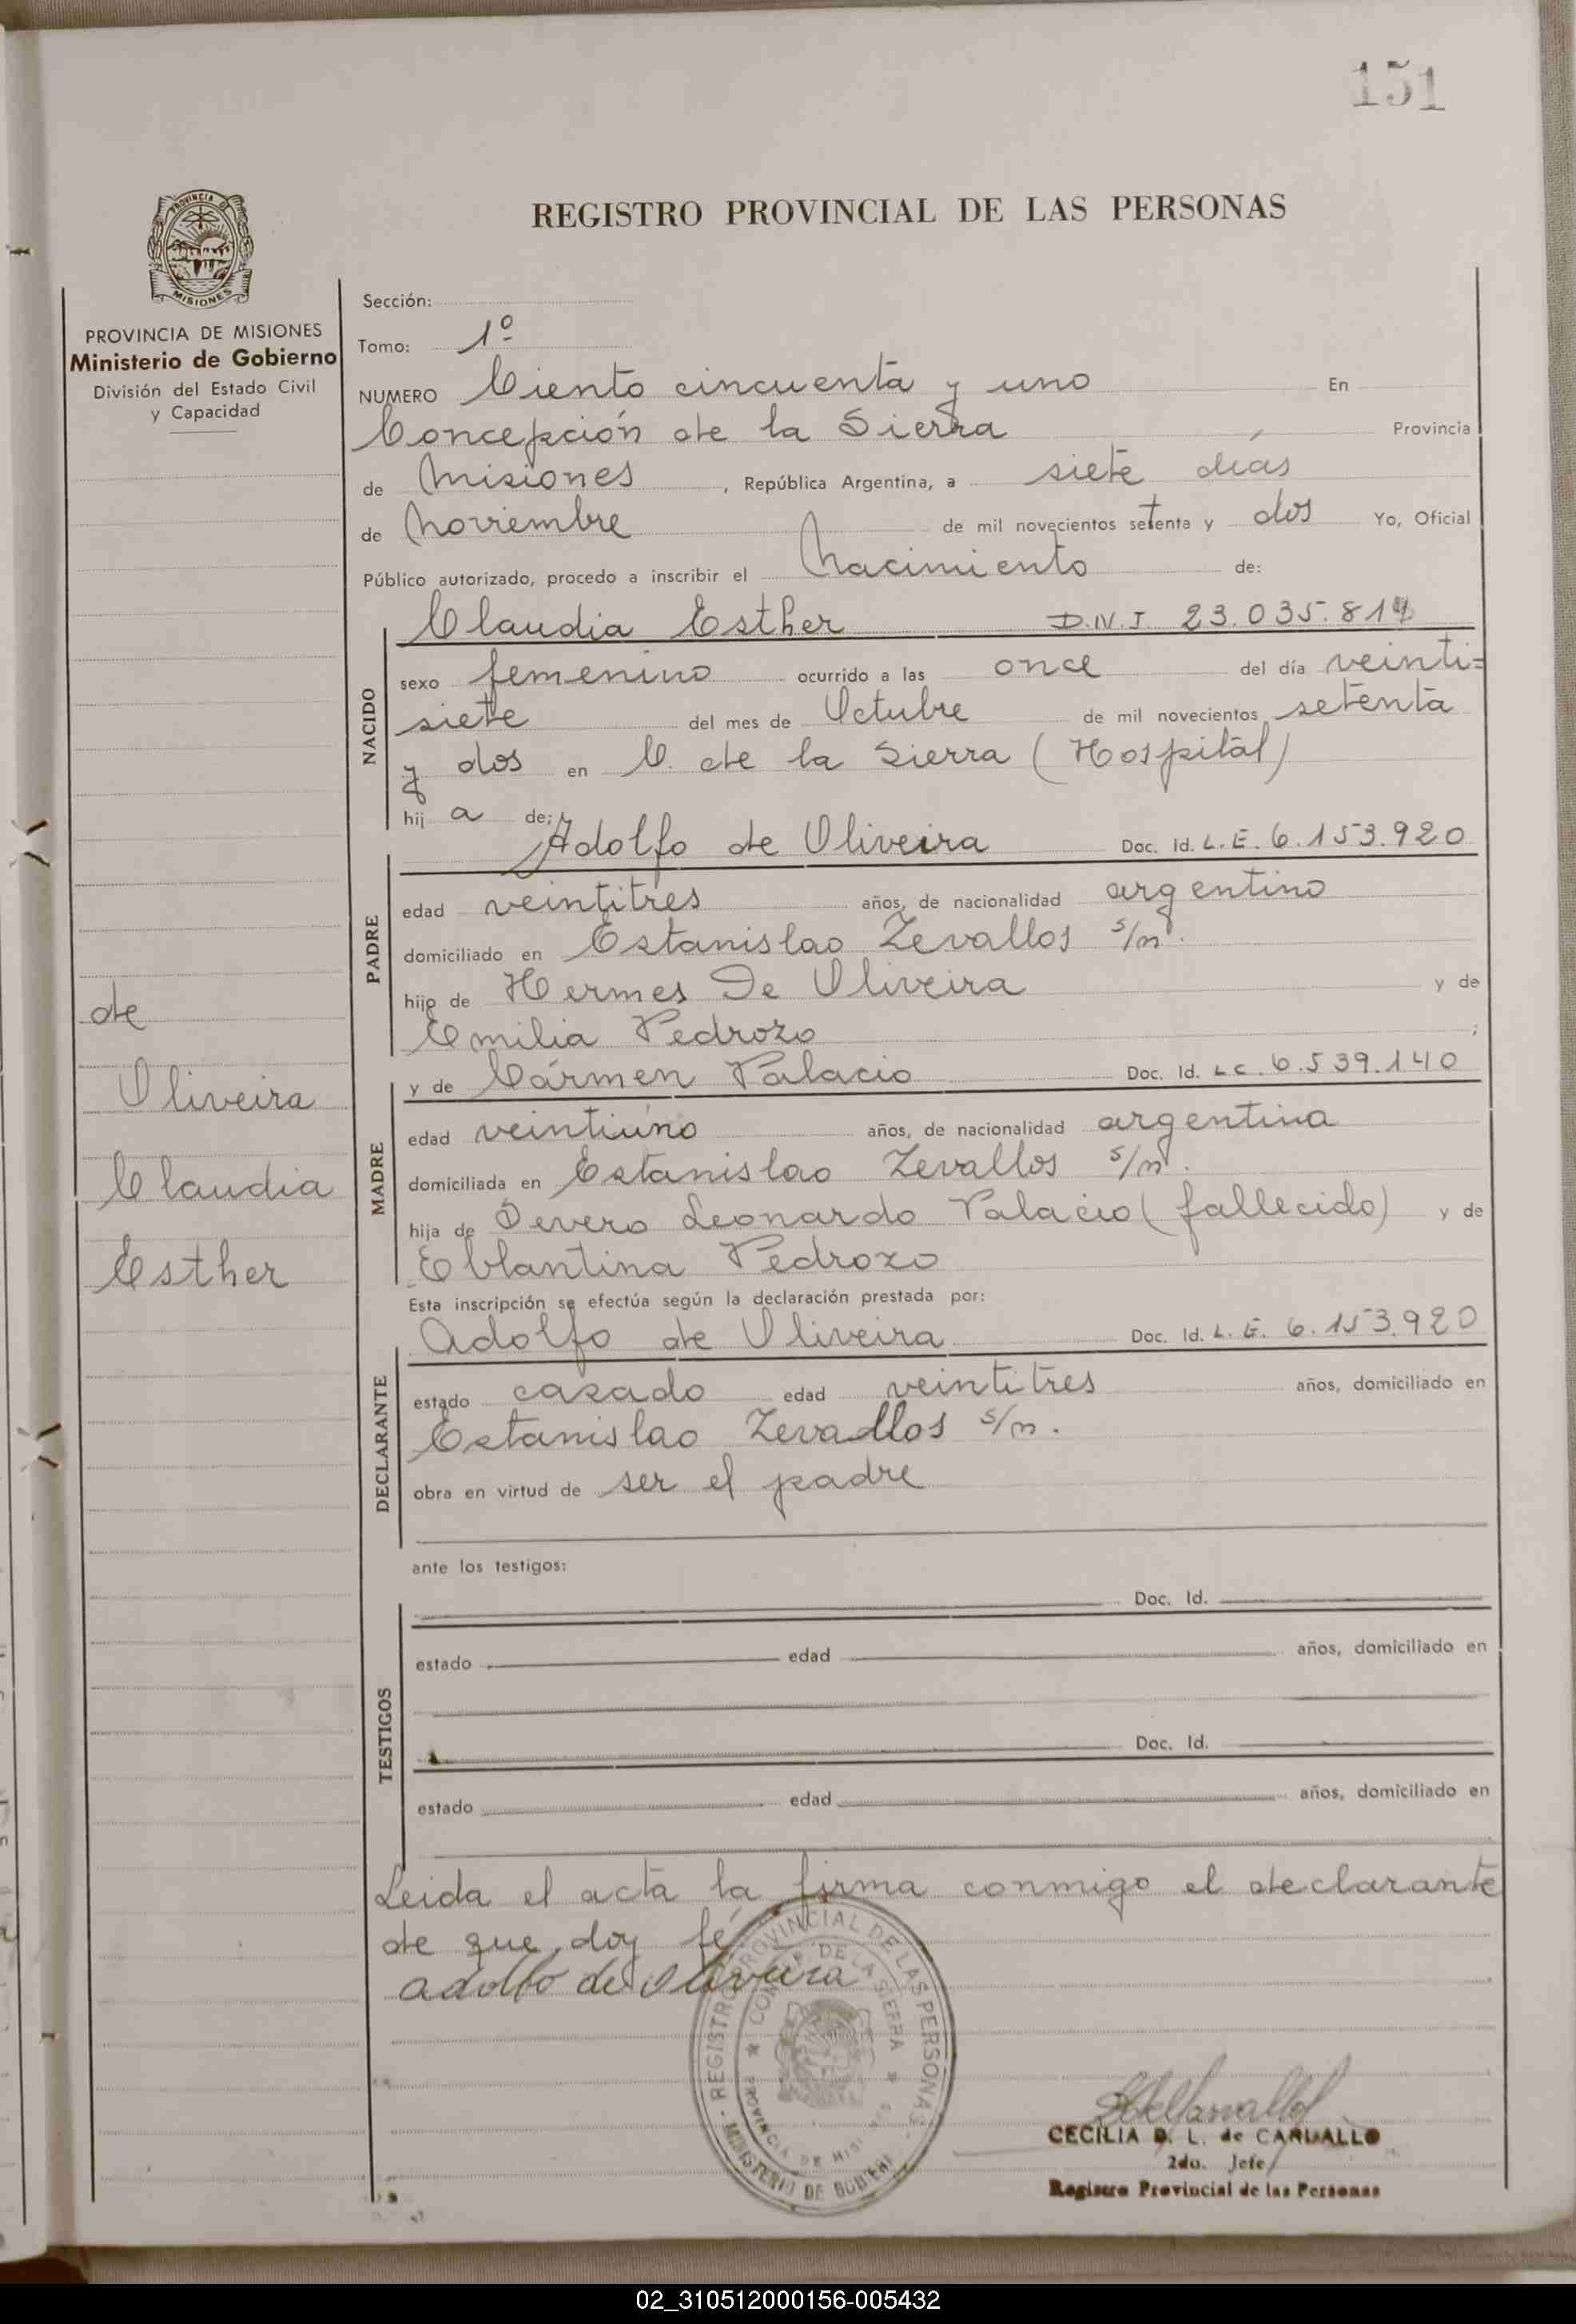 151
PROVINCIA DE MISIONES
REGISTRO PROVINCIAL DE LAS PERSONAS
PROVINCIA DE MISIONES
Ministerio de Gobierno
División del Estado Civil
y Capacidad
de
Oliveira
Claudia
Esther
Sección:
Tomo: 1º
NUMERO Ciento cincuenta y uno En
Concepción de la Sierra, Provincia
de Misiones, República Argentina, a siete días
de Noviembre de mil novecientos setenta y dos Yo, Oficial
Público autorizado, procedo a inscribir el Nacimiento de:
NACIDO
Claudia Esther D.N.I. 23.035.81
sexo femenino ocurrido a las once del día veinti=
siete del mes de Octubre de mil novecientos setenta
y dos en C. de la Sierra (Hospital)
hij a de:
PADRE
Adolfo de Oliveira Doc. Id. L.E. 6.153.920
edad veintitres años, de nacionalidad argentino
domiciliado en Estanislao Zevallos s/n.
hijo de Hermes De Oliveira y de
Emilia Pedrozo ;
MADRE
y de Cármen Palacio Doc. Id. L.C. 6.539.140
edad veintiúno años, de nacionalidad argentina
domiciliada en Estanislao Zevallos s/n.
hija de Severo Leonardo Palacio (fallecido) y de
Eblantina Pedrozo
Esta inscripción se efectúa según la declaración prestada por:
DECLARANTE
Adolfo de Oliveira Doc. Id. L.E. 6.153.920
estado casado edad veintitres años, domiciliado en
Estanislao Zevallos s/n.
obra en virtud de ser el padre
ante los testigos:
TESTIGOS
Doc. Id.
estado edad años, domiciliado en
Doc. Id.
estado edad años, domiciliado en
Leida el acta la firma conmigo el declarante
de que doy fé
adolfo de Oliveira
REGISTRO PROVINCIAL DE LAS PERSONAS
MINISTERIO DE GOBIERNO
DE LA SIERRA
PROVINCIA DE MISIONES
CECILIA D. L. de CARVALLO
2do. Jefe
Registro Provincial de las Personas
02_310512000156-005432